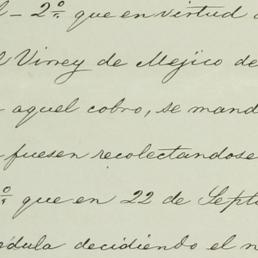 - 2º que en virtud
Virrey de Mejico de
aquel cobro, se mand
fuesen recolectandose
º que en 22 de Septi
édula decidiendo el n